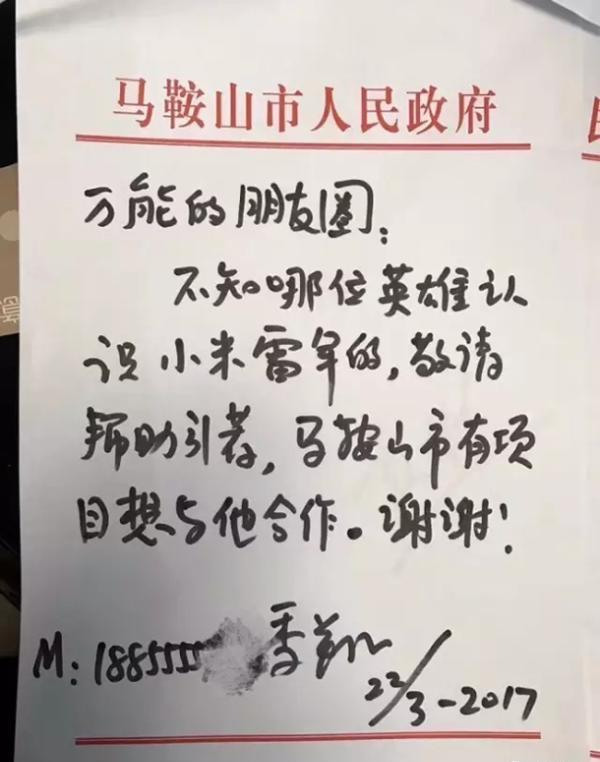 马鞍山市人民政府
万能的朋友圈:
不知哪位英雄认
识小米雷军的,敬请
帮助引荐,马鞍山市有项
目想与他合作。谢谢!
M:1885555 季翔
22/3-2017